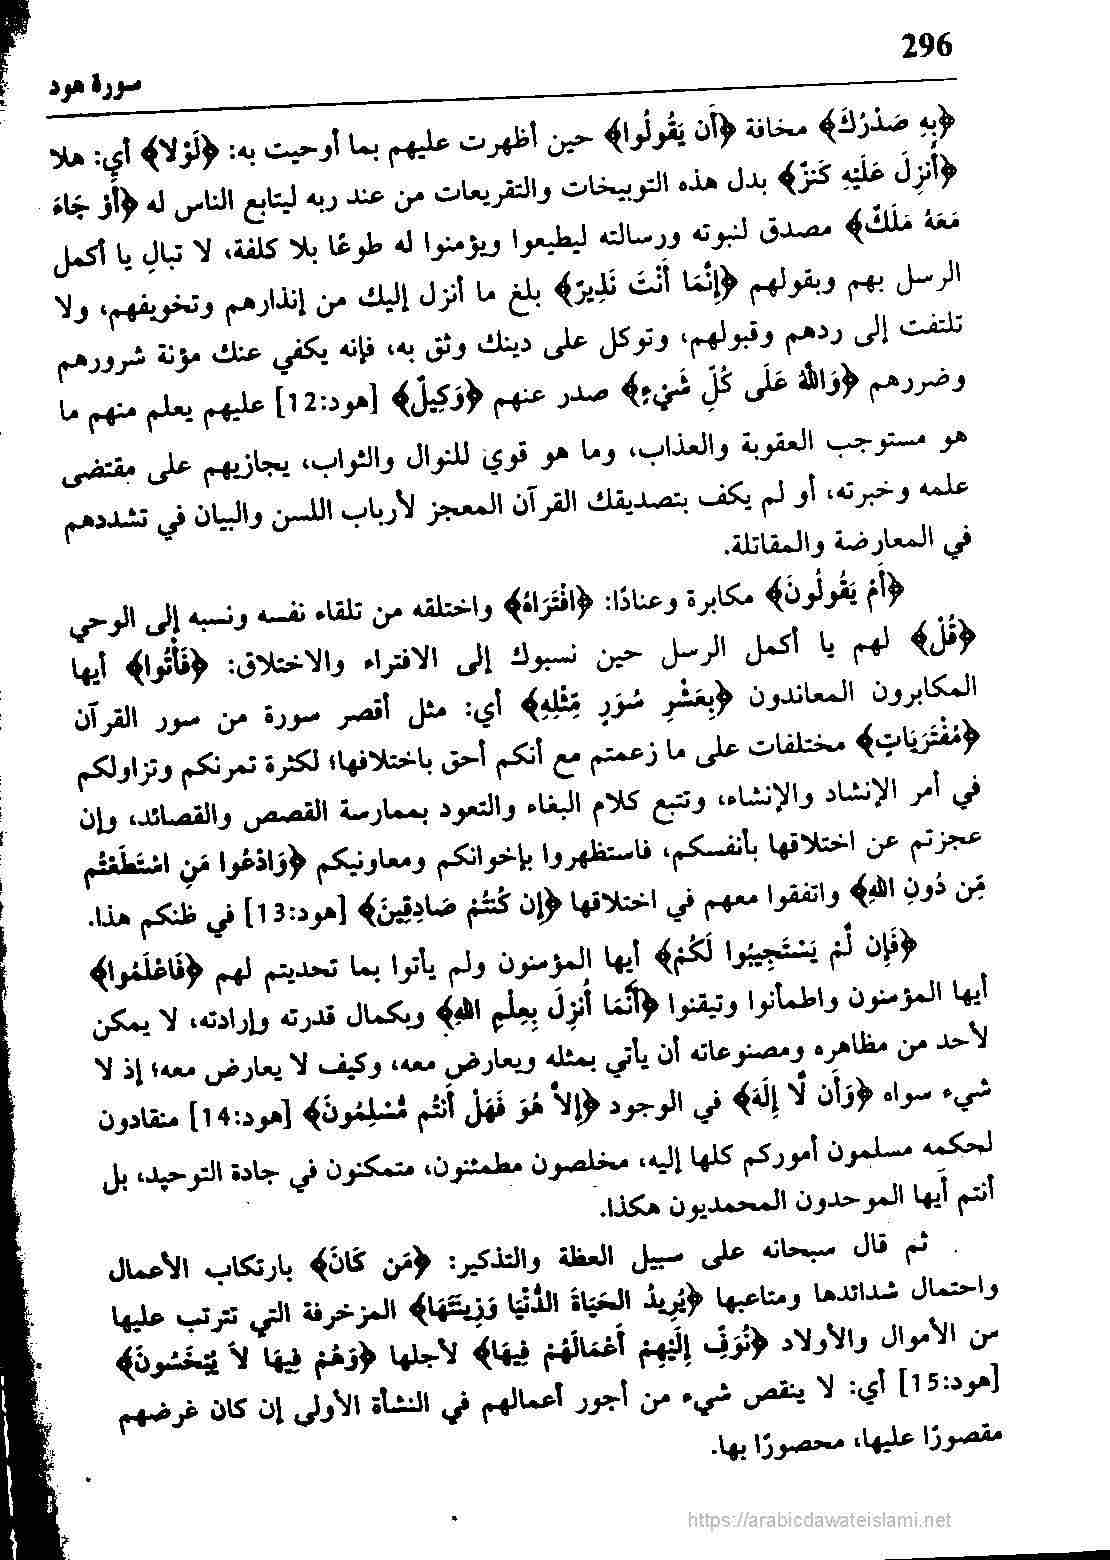 296
سورة هود
﴿بِهِ صَدْرُكَ﴾ مخافة ﴿أَن يَقُولُوا﴾ حين أظهرت عليهم بما أوحيت به: ﴿لَوْلا﴾ أي: هلا
﴿أُنزِلَ عَلَيْهِ كَنزٌ﴾ بدل هذه التوبيخات والتقريعات من عند ربه ليتابع الناس له ﴿أَوْ جَاءَ
مَعَهُ مَلَكٌ﴾ مصدق لنبوته ورسالته ليطيعوا ويؤمنوا له طوعًا بلا كلفة، لا تبالِ يا أكمل
الرسل بهم وبقولهم ﴿إِنَّمَا أَنْتَ نَذِيرٌ﴾ بلغ ما أنزل إليك من إنذارهم وتخويفهم، ولا
تلتفت إلى ردهم وقبولهم، وتوكل على دينك وثق به، فإنه يكفي عنك مؤنة شرورهم
وضررهم ﴿وَاللهُ عَلَى كُلِّ شَيْءٍ﴾ صدر عنهم ﴿وَكِيلٌ﴾ [هود:12] عليهم يعلم منهم ما
هو مستوجب العقوبة والعذاب، وما هو قوي للنوال والثواب، يجازيهم على مقتضى
علمه وخبرته، أو لم يكف بتصديقك القرآن المعجز لأرباب اللسن والبيان في تشددهم
في المعارضة والمقاتلة.
﴿أَمْ يَقُولُونَ﴾ مكابرة وعنادًا: ﴿افْتَرَاهُ﴾ واختلقه من تلقاء نفسه ونسبه إلى الوحي
﴿قُلْ﴾ لهم يا أكمل الرسل حين نسبوك إلى الافتراء والاختلاق: ﴿فَأْتُوا﴾ أيها
المكابرون المعاندون ﴿بِعَشْرِ سُوَرٍ مِّثْلِهِ﴾ أي: مثل أقصر سورة من سور القرآن
﴿مُفْتَرَيَاتٍ﴾ مختلقات على ما زعمتم مع أنكم أحق باختلاقها؛ لكثرة تمرنكم وتزاولكم
في أمر الإنشاد والإنشاء، وتتبع كلام البغاء والتعود بممارسة القصص والقصائد، وإن
عجزتم عن اختلاقها بأنفسكم، فاستظهروا بإخوانكم ومعاونيكم ﴿وَادْعُوا مَنِ اسْتَطَعْتُم
مِّن دُونِ اللهِ﴾ واتفقوا معهم في اختلاقها ﴿إِن كُنتُمْ صَادِقِينَ﴾ [هود:13] في ظنكم هذا.
﴿فَإِن لَّمْ يَسْتَجِيبُوا لَكُمْ﴾ أيها المؤمنون ولم يأتوا بما تحديتم لهم ﴿فَاعْلَمُوا﴾
أيها المؤمنون واطمأنوا وتيقنوا ﴿أَنَّمَا أُنزِلَ بِعِلْمِ اللهِ﴾ وبكمال قدرته وإرادته، لا يمكن
لأحد من مظاهره ومصنوعاته أن يأتي بمثله ويعارض معه، وكيف لا يعارض معه؛ إذ لا
شيء سواه ﴿وَأَن لَّا إِلَهَ﴾ في الوجود ﴿إِلاَّ هُوَ فَهَلْ أَنتُم مُّسْلِمُونَ﴾ [هود:14] منقادون
لحكمه مسلمون أموركم كلها إليه، مخلصون مطمئنون، متمكنون في جادة التوحيد، بل
أنتم أيها الموحدون المحمديون هكذا.
ثم قال سبحانه على سبيل العظة والتذكير: ﴿مَن كَانَ﴾ بارتكاب الأعمال
واحتمال شدائدها ومتاعبها ﴿يُرِيدُ الحَيَاةَ الدُّنْيَا وَزِينَتَهَا﴾ المزخرفة التي تترتب عليها
من الأموال والأولاد ﴿نُوَفِّ إِلَيْهِمْ أَعْمَالَهُمْ فِيهَا﴾ لأجلها ﴿وَهُمْ فِيهَا لاَ يُبْخَسُونَ﴾
[هود:15] أي: لا ينقص شيء من أجور أعمالهم في النشأة الأولى إن كان غرضهم
مقصورًا عليها، محصورًا بها.
https://arabicdawateislami.net